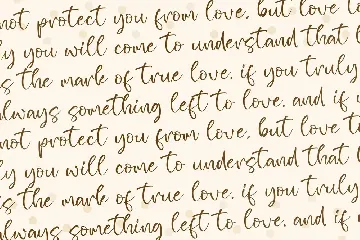 not protect you from love. but love t
ly you will come to understand that l
is the mark of true love. if you truly
always something left to love. and if
not protect you from love. but love t
ly you will come to understand that l
is the mark of true love. if you truly
always something left to love. and if